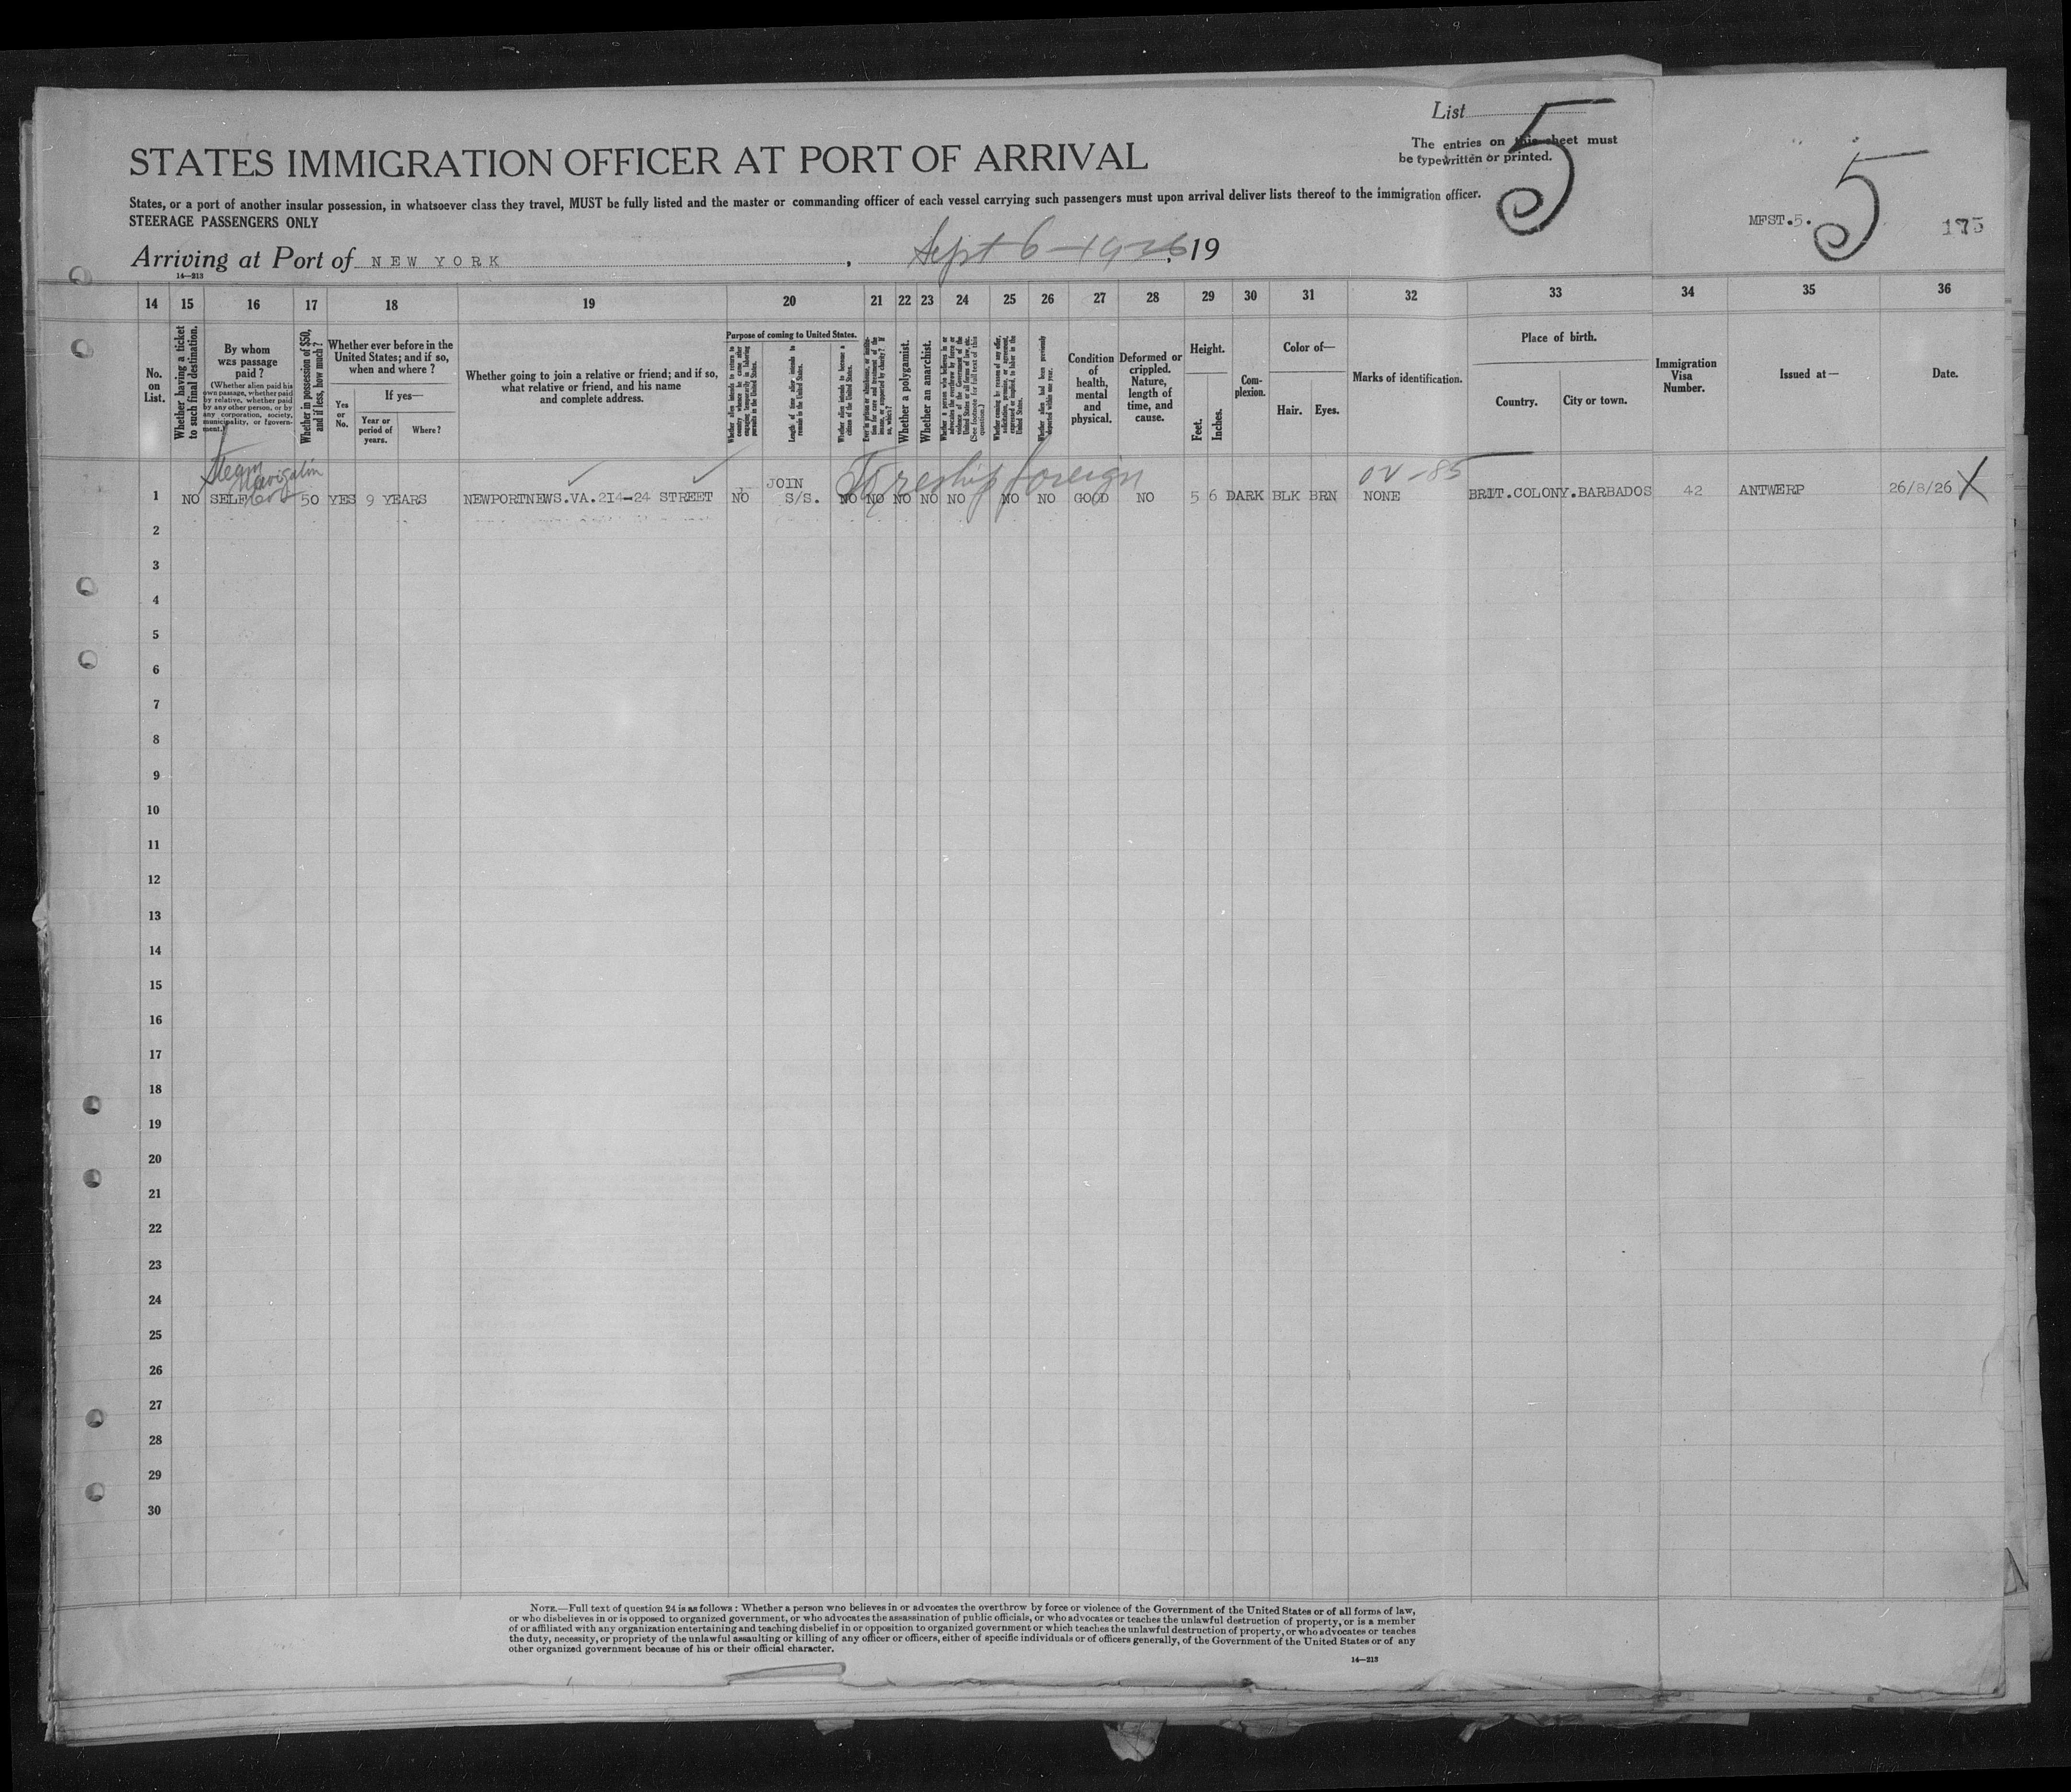 List
5
The entries on this sheet must
be typewritten or printed.
STATES IMMIGRATION OFFICER AT PORT OF ARRIVAL
5
MFST.5.
175
States, or a port of another insular possession, in whatsoever class they travel, MUST be fully listed and the master or commanding officer of each vessel carrying such passengers must upon arrival deliver lists thereof to the immigration officer.
STEERAGE PASSENGERS ONLY
Arriving at Port of NEW YORK, Sept 6-1926, 19
14—213
14 15 16 17 18 19 20 21 22 23 24 25 26 27 28 29 30 31 32 33 34 35 36
No. on List.
Whether having a ticket to such final destination.
By whom was passage paid?
(Whether alien paid his own passage, whether paid by relative, whether paid by any other person, or by any corporation, society, municipality, or government.)
Whether in possession of $50, and if less, how much?
Whether ever before in the United States; and if so, when and where?
Yes or No.
If yes—
Year or period of years.
Where?
Whether going to join a relative or friend; and if so, what relative or friend, and his name and complete address.
Purpose of coming to United States.
Whether alien intends to return to country whence he came after engaging temporarily in laboring pursuits in the United States.
Length of time alien intends to remain in the United States.
Whether alien intends to become a citizen of the United States.
Whether a polygamist.
Whether an anarchist.
Whether alien had been previously deported within one year.
Condition of health, mental and physical.
Deformed or crippled. Nature, length of time, and cause.
Height.
Feet.
Inches.
Complexion.
Color of—
Hair.
Eyes.
Marks of identification.
Place of birth.
Country.
City or town.
Immigration Visa Number.
Issued at—
Date.
Steam
Navigation
Co
foreign
JOIN
1 NO SELF 50 YES 9 YEARS NEWPORTNEWS.VA.2I4-24 STREET NO S/S. NO NO NO NO NO NO NO GOOD NO 5 6 DARK BLK BRN NONE BRIT.COLONY.BARBADOS 42 ANTWERP 26/8/26 X
2
3
4
5
6
7
8
9
10
11
12
13
14
15
16
17
18
19
20
21
22
23
24
25
26
27
28
29
30
NOTE.—Full text of question 24 is as follows: Whether a person who believes in or advocates the overthrow by force or violence of the Government of the United States or of all forms of law,
or who disbelieves in or is opposed to organized government, or who advocates the assassination of public officials, or who advocates or teaches the unlawful destruction of property, or is a member
of or affiliated with any organization entertaining and teaching disbelief in or opposition to organized government or which teaches the unlawful destruction of property, or who advocates or teaches
the duty, necessity, or propriety of the unlawful assaulting or killing of any officer or officers, either of specific individuals or of officers generally, of the Government of the United States or of any
other organized government because of his or their official character.
14—213